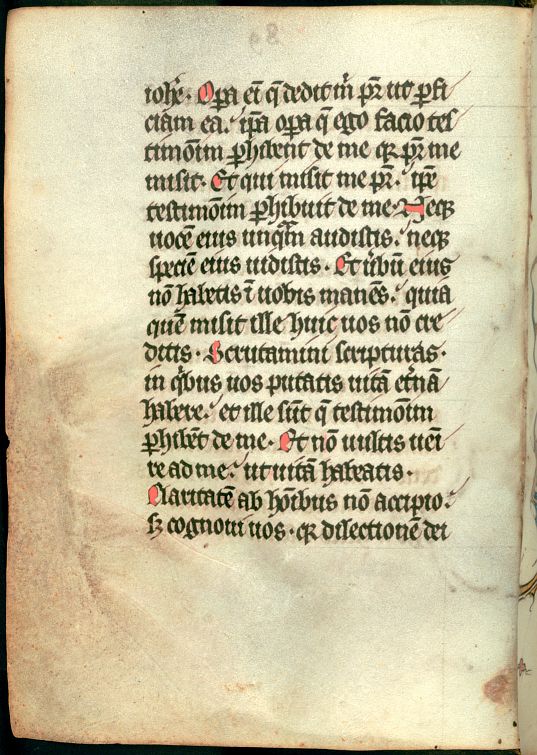 iohē· Opa ei̅ q̅ dedit m̅ pr̅ ut pfi
ciam ea. ip̅a opa q̅ ego facio tes
timoniu̅ phibent de me qr pr̅ me
misit· Et qui misit me pr̅. ip̅e
testimoniu̅ phibuit de me· Necq̅
uocem eius unqua̅ audistis. neq̅
specie̅ eius uidistis· Et u̅bu̅ eius
no̅ habetis i̅ uobis mane̅s. quia
que̅ misit ille huic uos no̅ cre
ditis· Scrutamini scripturas·
in qⁱbus uos putatis uita̅ et̅na̅
habere. et ille su̅t q̅ testimoniu̅
phibe̅t de me· Et no̅ uultis ueni
re ad me. ut uita̅ habeatis·
Claritate̅ ab ho̅ibus no̅ accipio.
sꝫ cognoui uos· qr dilectione̅ dei